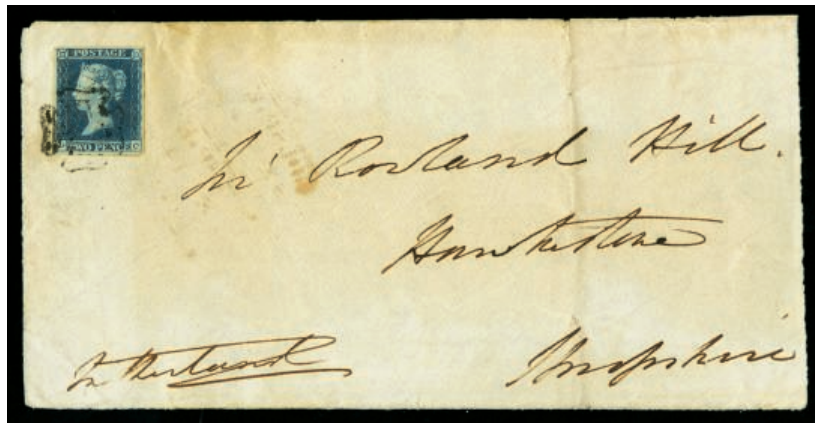 POSTAGE
TWO PENCE
Sir Rowland Hill.
Hawkstone
Shropshire
Sutherland